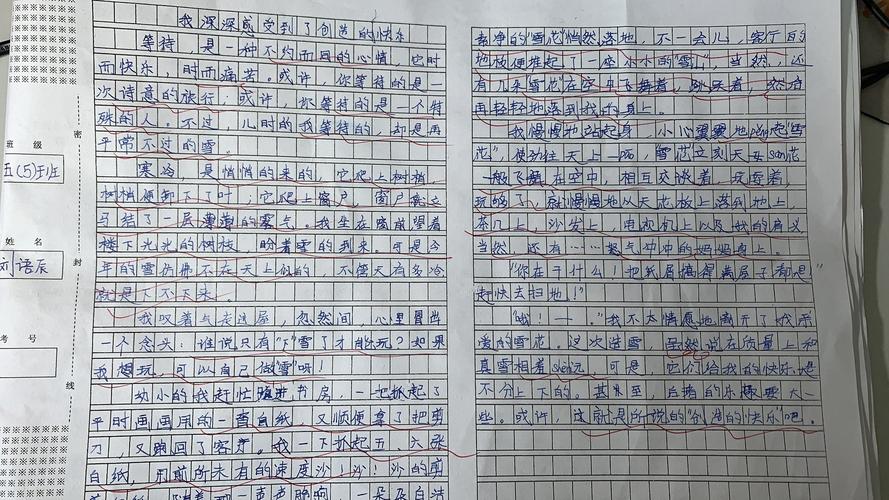 班级
五(5)班
姓名
刘语辰
考号
密
封
线
我深深感受到了创造的快乐
等待，是一种不约而同的心情，它时
而快乐，时而痛苦。或许，你等待的是一
次诗意的旅行；或许，你等待的是一个特
殊的人。不过，儿时的我等待的，却是再
平常不过的雪。
寒冷，是悄悄的来的，它爬上树梢，
树梢便卸下了叶；它爬上窗户，窗户立
马结了一层薄薄的雾气。我坐在窗前望着
楼下光光的树枝，盼着雪的到来，可是今
年的雪仿佛不在天上似的，不管天有多冷
就是下不下来。
我叹着气走进屋，忽然间，心里冒出
一个念头：谁说只有"下"雪了才能玩？如果
我想玩，可以自己做"雪"呀！
幼小的我赶忙进书房，一把抓起了
平时画画用的一沓白纸，又顺便拿了把剪
刀，又跑回了客厅。我一下抓起五、六张
白纸，用前所未有的速度沙！沙！沙的剪
一朵朵洁
净的"雪花"悄然落地，不一会儿，客厅的
地板便堆起了一座小小的"雪山"，当然，还
有几朵"雪花"在空中飞舞着，跳跃着，然后
再轻轻地落到我的身上。
我慢慢地站起身，小心翼翼地peng起"雪
花"，使劲往天上一po，"雪花"立刻天女san花
一般飞舞在空中，相互交谈着，玩耍着，
玩够了，就慢慢地从天花板上落到地上，
茶几上，沙发上，电视机上以及我的肩
当然，还有……怒气冲冲的妈妈身上。
"你在干什么！把纸屑搞得满屋子都是"
赶快去扫地！"
"哦！——。"我不太情愿地离开了我
爱的雪花。这次造雪，虽然说在质量上和
真雪相差shen远，可是，它们给我的快乐是
不分上下的。甚至，自造的乐趣要大一
些。或许，这就是所说的"创造的快乐"吧。